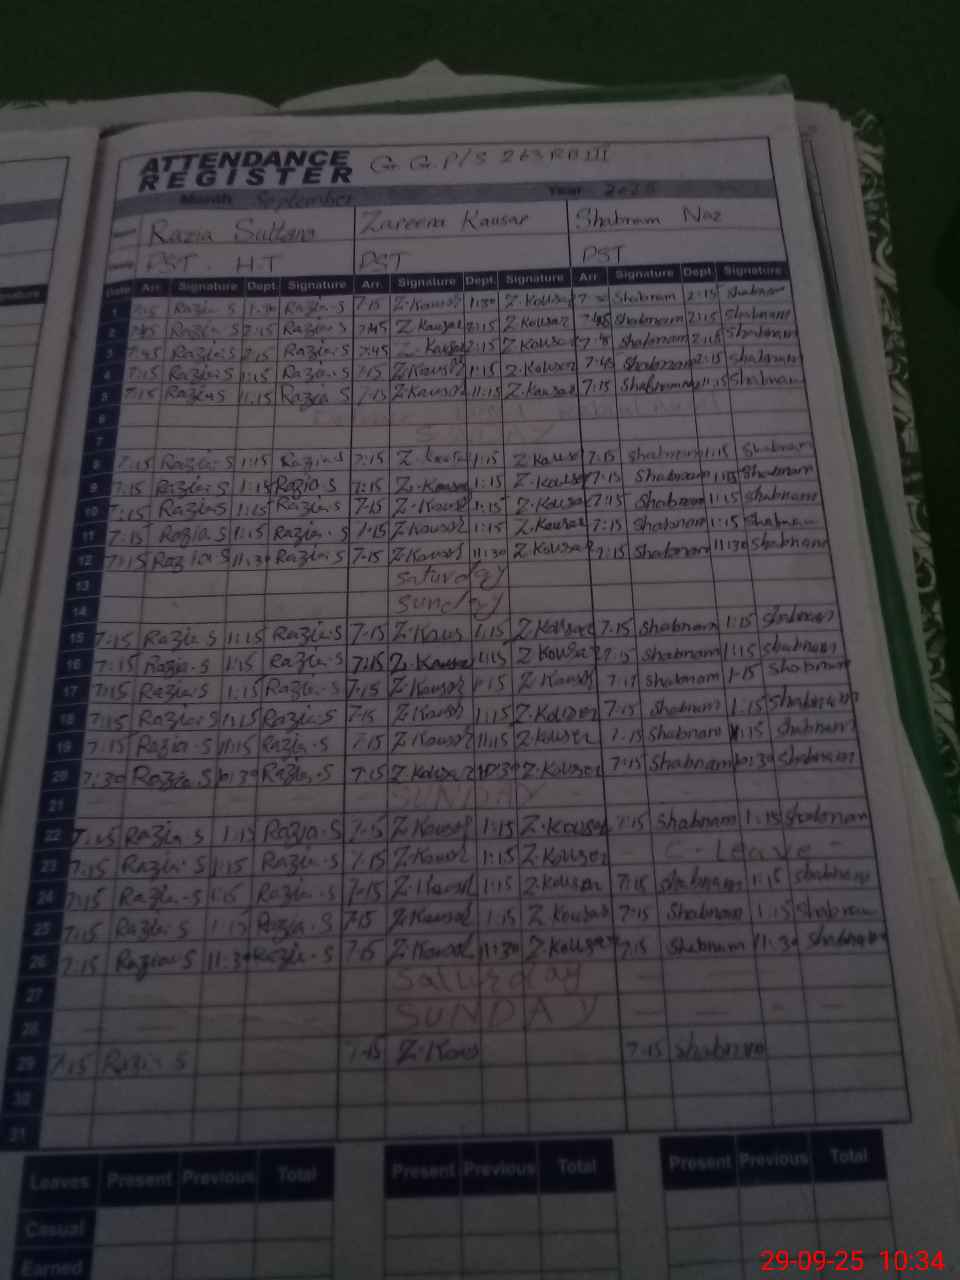 ATTENDANCE REGISTER G. G. P/S 263 RB III
Month September Year 2025
Name Razia Sultana Zareena Kausar Shabnam Naz
PST. H.T PST PST
Date Arr. Signature Dept. Signature Arr. Signature Dept. Signature Arr. Signature Dept. Signature
1 7:15 Razia S Razia.S 7-15 Z-Kousar 1:30 Z.Kousar Shabnam 2:15 Shabnam
2 7:45 Razia S 2:15 Razia.S 7:45 Z Kousar 2:15 Z Kousar 7:45 Shabnam 2:15 Shabnam
3 7:45 Razia S 2:15 Razia.S 7:45 Z-Kousar 2:15 Z Kousar Shabnam 2:15 Shabnam
4 7:15 Razia.S 1:15 Razia.S 7:15 Z Kousar 1:15 Z.Kousar 7:45 Shabnam 2:15 Shabnam
5 7:15 Razia S 11:15 Razia S 7-15 Z Kousar 11:15 Z.Kousar 7:15 Shabnam 11:15 Shabnam
6
7 SUNDAY
8 7:15 Razia.S 1:15 Razia.S 7:15 Z 1:15 Z Kousar 7:15 Shabnam 1:15 Shabnam
9 7:15 Razia.S 1:15 Razia.S 7:15 Z.Kousar 1:15 Z-Kousar 7-15 Shabnam 1:15 Shabnam
10 7:15 Razia S 1:15 Razia.S 7-15 Z-Kousar 1:15 Z-Kousar 7:15 Shabnam 1:15 Shabnam
11 7:15 Razia S 1:15 Razia.S 7-15 Z Kousar 1:15 Z.Kousar 7:15 Shabnam 1:15 Shabnam
12 7:15 Razia S 11:30 Razia.S 7-15 Z-Kousar 11:30 Z.Kousar 7:15 Shabnam 11:30 Shabnam
13 Saturday
14 Sunday
15 7:15 Razia.S 1:15 Razia.S 7-15 Z-Kous 1:15 Z Kousar 7-15 Shabnam 1:15 Shabnam
16 7:15 Razia.S 1:15 Razia.S 7:15 Z.Kousar 1:15 Z Kousar 7:15 Shabnam 1:15 Shabnam
17 7:15 Razia.S 1:15 Razia.S 7-15 Z-Kousar 1:15 Z Kousar Shabnam 1-15 Shabnam
18 7:15 Razia.S 1:15 Razia.S 7-15 Z Kousar 1:15 Z.Kousar 7:15 Shabnam 1:15 Shabnam
19 7:15 Razia.S 1:15 Razia.S 7-15 Z-Kousar 11:15 Z-Kouser 7-15 Shabnam 1:15 Shabnam
20 7:30 Razia.S 10:30 Razia.S 7:15 Z.Kousar 10:30 Z.Kouser 7:15 Shabnam 10:30 Shabnam
21 - - - - - SUNDAY - - - - -
22 7:15 Razia S 1:15 Razia.S 7-15 Z Kousar 1:15 Z.Kousar 7:15 Shabnam 1:15 Shabnam
23 7:15 Razia.S 1:15 Razia.S 7-15 Z-Kousar 1:15 Z-Kouser - C-Leave -
24 7:15 Razia.S 1:15 Razia.S 7-15 Z-Kousar 1:15 Z-Kouser 7:15 Shabnam 1:15 Shabnam
25 7:15 Razia S 1:15 Razia.S 7:15 Z-Kousar 1:15 Z Kousar 7:15 Shabnam 1:15 Shabnam
26 7:15 Razia S 11:30 Razia.S 7-15 Z-Kousar 11:30 Z-Kousar 7:15 Shabnam 11:30 Shabnam
27 - - - - Saturday - - - -
28 - - - - SUNDAY - - - -
29 7:15 Razia S 7-15 Z-Kous 7-15 Shabnam
30
31
Leaves Present Previous Total Present Previous Total Present Previous Total
Casual
Earned
29-09-25 10:34